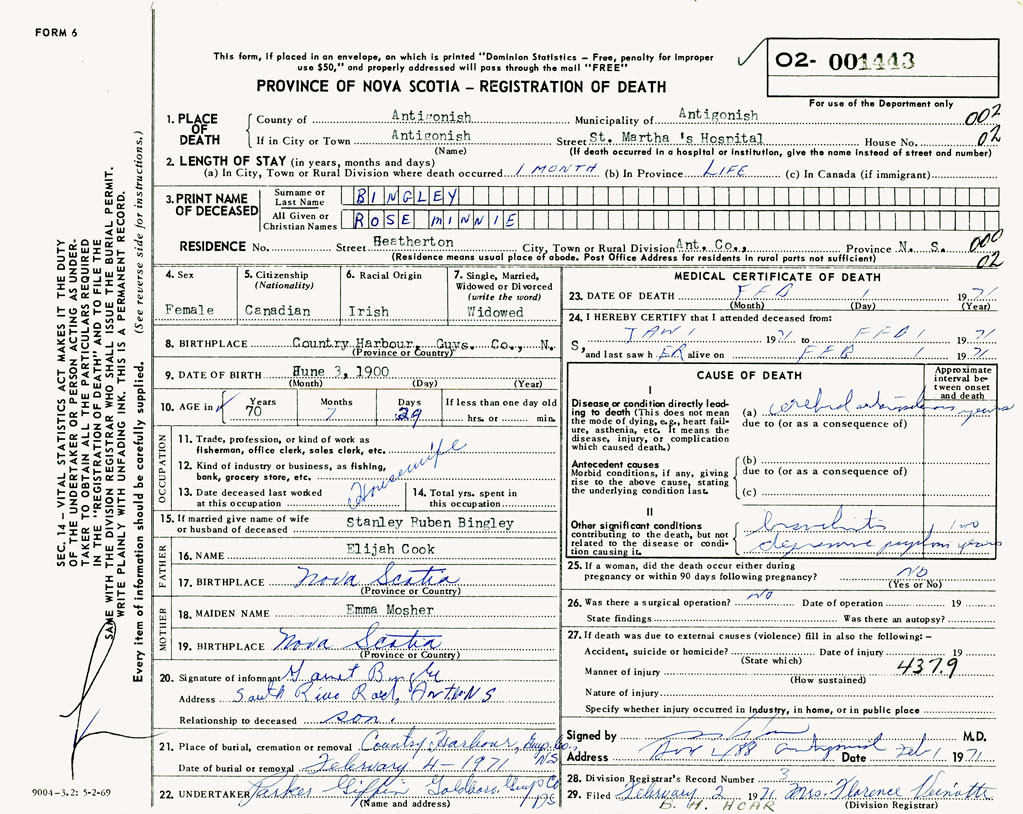 FORM 6
This form, if placed in an envelope, on which is printed "Dominion Statistics – Free, penalty for improper
use $50," and properly addressed will pass through the mail "FREE"
02- 001443
PROVINCE OF NOVA SCOTIA – REGISTRATION OF DEATH
For use of the Department only
1. PLACE OF DEATH
County of Antigonish Municipality of Antigonish 002
If in City or Town Antigonish Street St. Martha 's Hospital House No. 02
(Name) (If death occurred in a hospital or institution, give the name instead of street and number)
2. LENGTH OF STAY (in years, months and days)
(a) In City, Town or Rural Division where death occurred 1 MONTH (b) In Province LIFE (c) In Canada (if immigrant)
3. PRINT NAME OF DECEASED
Surname or Last Name BINGLEY
All Given or Christian Names ROSE MINNIE
RESIDENCE No. Street Heatherton City, Town or Rural Division Ant. Co., Province N. S. 000
(Residence means usual place of abode. Post Office Address for residents in rural parts not sufficient) 02
4. Sex
Female
5. Citizenship
(Nationality)
Canadian
6. Racial Origin
Irish
7. Single, Married,
Widowed or Divorced
(write the word)
Widowed
8. BIRTHPLACE Country Harbour, Guys. Co., N. S,
(Province or Country)
9. DATE OF BIRTH June 3, 1900
(Month) (Day) (Year)
10. AGE in
Years
70
Months
7
Days
29
If less than one day old
hrs. or min.
OCCUPATION
11. Trade, profession, or kind of work as
fisherman, office clerk, sales clerk, etc.
12. Kind of industry or business, as fishing,
bank, grocery store, etc.
Housewife
13. Date deceased last worked
at this occupation
14. Total yrs. spent in
this occupation
15. If married give name of wife
or husband of deceased Stanley Ruben Bingley
FATHER
16. NAME Elijah Cook
17. BIRTHPLACE Nova Scotia
(Province or Country)
MOTHER
18. MAIDEN NAME Emma Mosher
19. BIRTHPLACE Nova Scotia
(Province or Country)
20. Signature of informant Garnet Bingley
Address South River Road, Ant. NS
Relationship to deceased son.
21. Place of burial, cremation or removal Country Harbour, Guys. Co. NS
Date of burial or removal February 4 - 1971
22. UNDERTAKER Parker Giffin Goldboro, Guys Co NS
(Name and address)
MEDICAL CERTIFICATE OF DEATH
23. DATE OF DEATH FEB 1 1971
(Month) (Day) (Year)
24. I HEREBY CERTIFY that I attended deceased from:
JAN 1 1971 to FEB 1 1971
and last saw h ER alive on FEB 1 1971
CAUSE OF DEATH
Approximate
interval be-
tween onset
and death
I
Disease or condition directly lead-
ing to death (This does not mean
the mode of dying, e.g., heart fail-
ure, asthenia, etc. It means the
disease, injury, or complication
which caused death.)
(a) cerebral years
due to (or as a consequence of)
Antecedent causes
Morbid conditions, if any, giving
rise to the above cause, stating
the underlying condition last.
(b)
due to (or as a consequence of)
(c)
II
Other significant conditions
contributing to the death, but not
related to the disease or condi-
tion causing it.
depressive years
25. If a woman, did the death occur either during
pregnancy or within 90 days following pregnancy? NO
(Yes or No)
26. Was there a surgical operation? NO Date of operation 19
State findings Was there an autopsy?
27. If death was due to external causes (violence) fill in also the following: –
Accident, suicide or homicide? Date of injury 19
(State which)
Manner of injury 437.9
(How sustained)
Nature of injury
Specify whether injury occurred in Industry, in home, or in public place
Signed by M.D.
Address Box 488 Antigonish Date Feb 1 1971
28. Division Registrar's Record Number 3
29. Filed February 2 1971 Mrs. Florence
D. H. HOAR (Division Registrar)
SEC. 14 – VITAL STATISTICS ACT MAKES IT THE DUTY
OF THE UNDERTAKER OR PERSON ACTING AS UNDER-
TAKER TO OBTAIN ALL THE PARTICULARS REQUIRED
IN THE "REGISTRATION OF DEATH" AND TO FILE THE
SAME WITH THE DIVISION REGISTRAR WHO SHALL ISSUE THE BURIAL PERMIT.
WRITE PLAINLY WITH UNFADING INK. THIS IS A PERMANENT RECORD.
Every item of information should be carefully supplied. (See reverse side for instructions.)
9004-3.2: 5-2-69